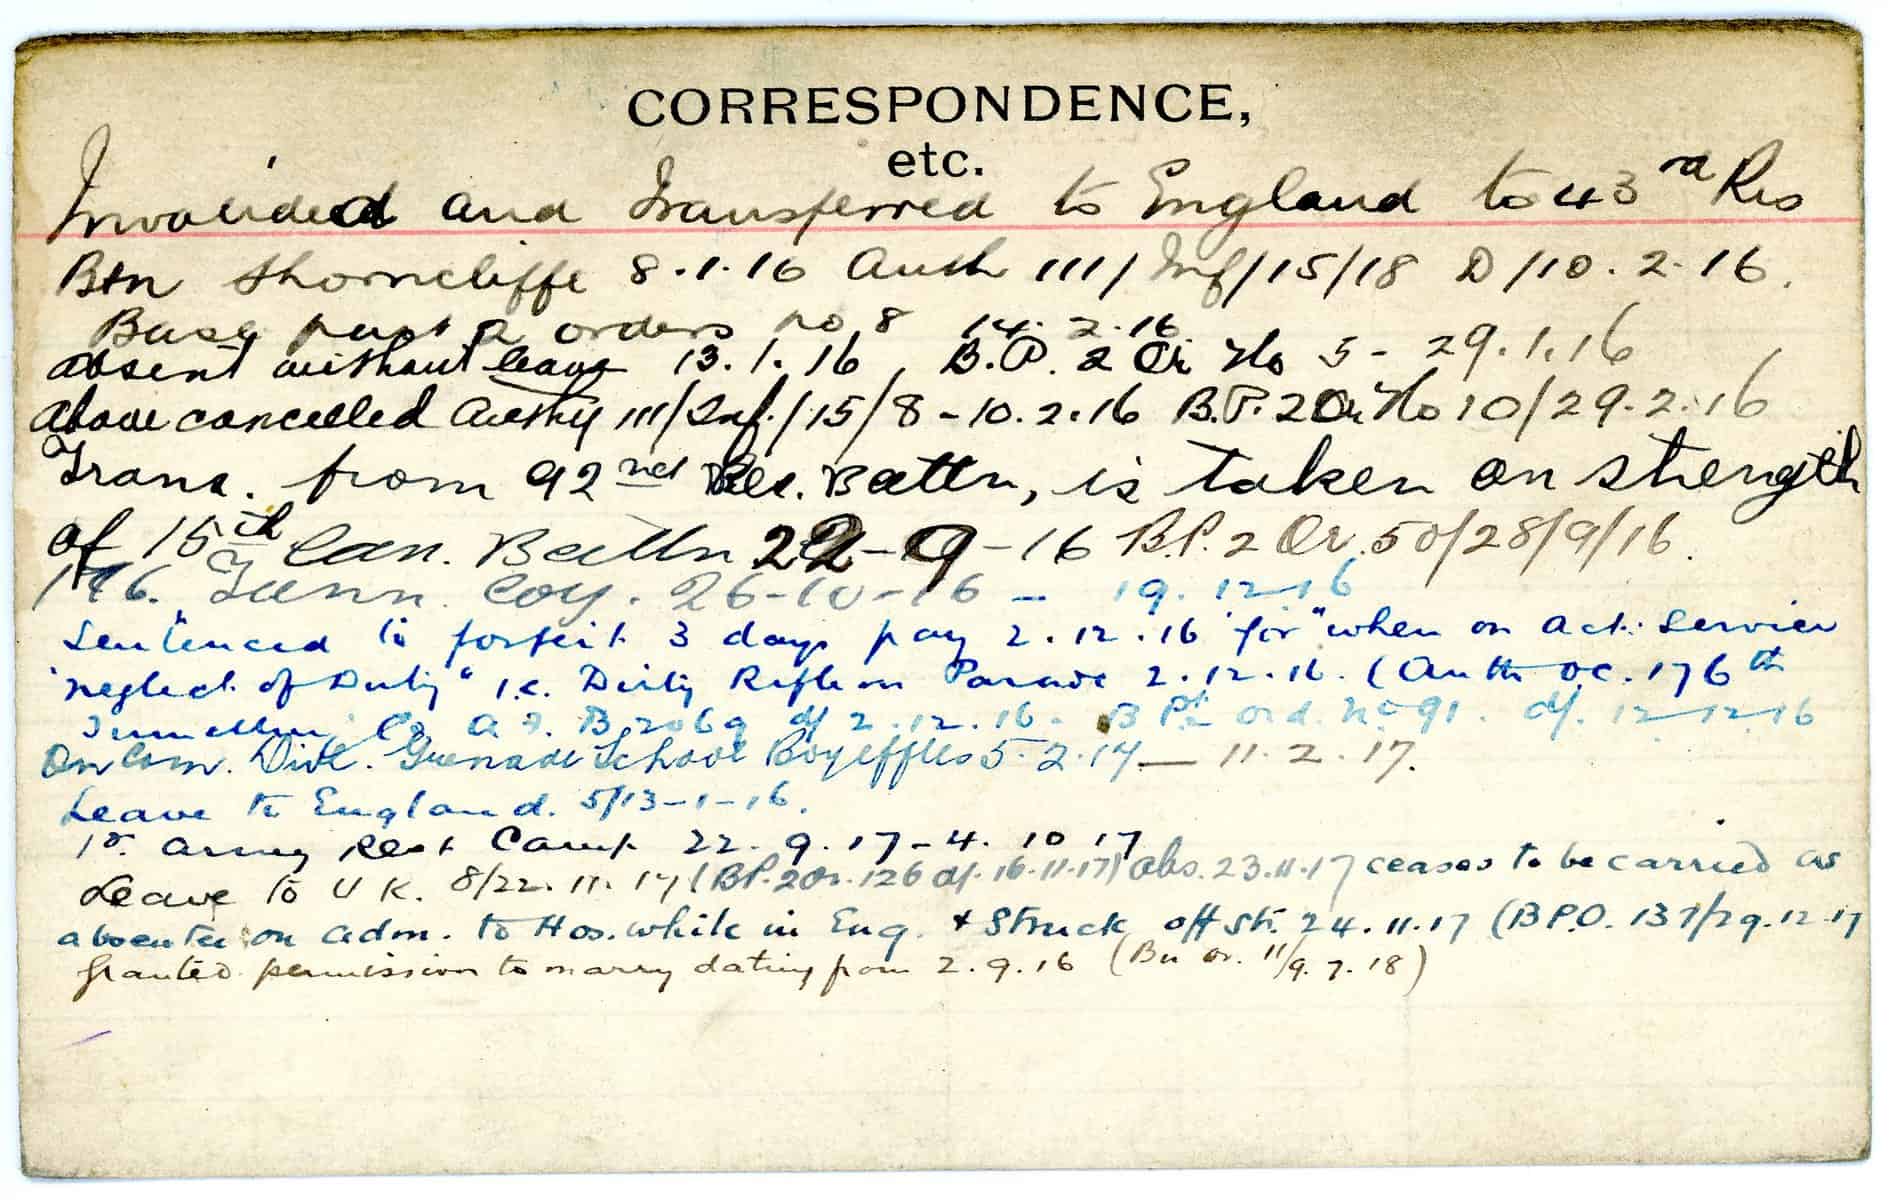 CORRESPONDENCE,
etc.
Invalided and Transferred to England to 43rd Res
Btn Shorncliffe 8.1.16 Auth 111/Inf/15/18 D/10.2.16.
Base part 2 orders no 8 14.2.16
absent without leave 13.1.16, B.P. 2 Or No 5 - 29.1.16
Above cancelled Authy 111/Inf./15/8 - 10.2.16 B.P. 2 Or No 10/29.2.16
Trans. from 92nd Res. Battn, is taken on strength
of 15th Can. Battn 22-9-16 B.P. 2 Or. 50/28/9/16.
176. Tunn. Coy. 26-10-16 - 19.12-16
Sentenced to forfeit 3 days pay 2.12.16 for "when on Act. Service
"neglect of Duty" i.e. Dirty Rifle on Parade 2.12.16. (Auth O.C. 176th
Tunnelling Co A.F. B 2069 d/ 2.12.16. B Pt 2 Ord. No 91. d/. 12-12-16
On Com. Divl. Grenade School Boyeffles 5.2.17 — 11.2.17.
Leave to England. 5/13-1-16.
1st Army Rest Camp 22.9.17 - 4.10.17
Leave to U K. 8/22.11.17 (BP. 2 Or. 126 d/. 16.11.17) Abs. 23.11.17 ceases to be carried as
absentee on adm. to Hos. while in Eng. + Struck off Str. 24.11.17 (B P.O. 137/29.12.17
Granted permission to marry dating from 2.9.16 (Bn Or. 11/9.7.18)